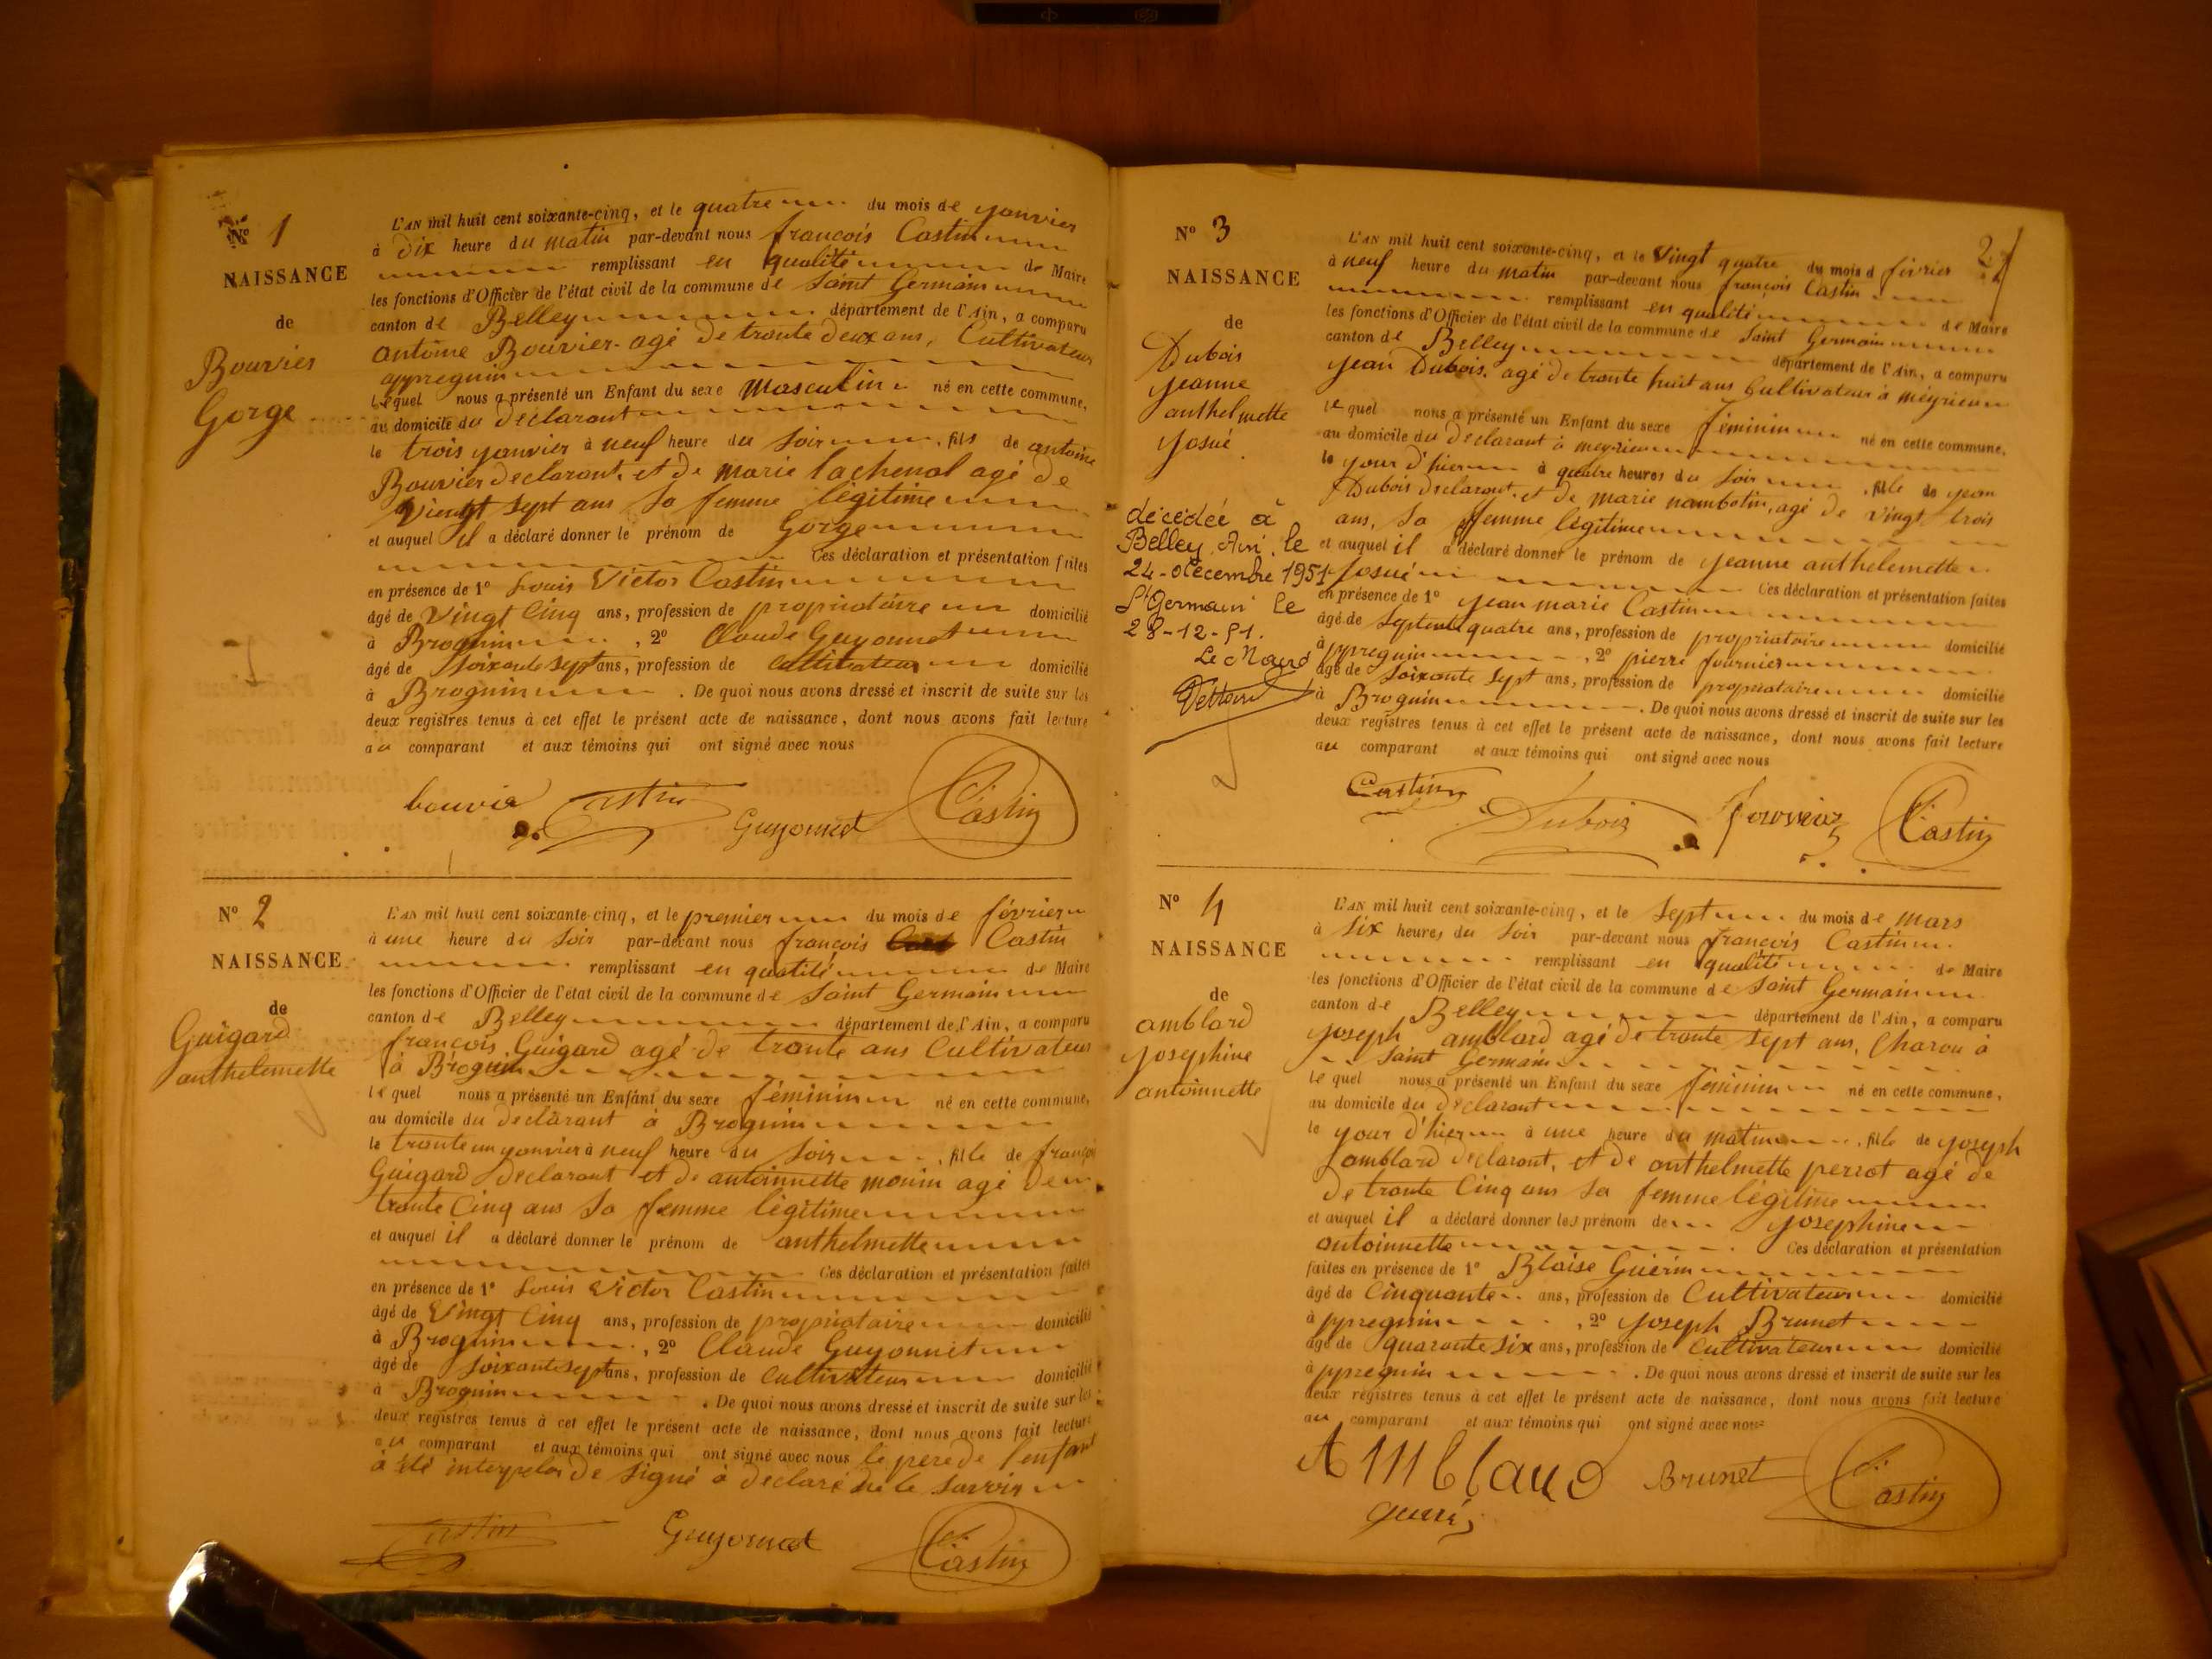 Nº 1
NAISSANCE
de
Bouvier
Gorge
L'AN mil huit cent soixante-cinq, et le quatre du mois de janvier
à dix heure du matin par-devant nous françois Castin
remplissant en qualité de Maire
les fonctions d'Officier de l'état civil de la commune de Saint Germain
canton de Belley département de l'Ain, a comparu
antoine Bouvier agé de trante deux ans, Cultivateur
appregnin
lequel nous a présenté un Enfant du sexe Masculin né en cette commune,
au domicile du declarant
le trois janvier à neuf heure du soir, fils de antoine
Bouvier declarant, et de marie lachenal agé de
Viengt sept ans sa femme légitime
et auquel il a déclaré donner le prénom de Gorge
Ces déclaration et présentation faites
en présence de 1º Louis Victor Castin
âgé de Vingt Cinq ans, profession de propriataire domicilié
à Brognin, 2º Claude Guyonnet
âgé de soixante sept ans, profession de Cultivateur domicilié
à Brognin. De quoi nous avons dressé et inscrit de suite sur les
deux registres tenus à cet effet le présent acte de naissance, dont nous avons fait lecture
au comparant et aux témoins qui ont signé avec nous
bouvie Castin Guyonnet Castin
Nº 2
NAISSANCE
de
Guigard
anthelemette
L'AN mil huit cent soixante-cinq, et le premier du mois de février
à une heure du soir par-devant nous françois Castin
remplissant en qualité de Maire
les fonctions d'Officier de l'état civil de la commune de Saint Germain
canton de Belley département de l'Ain, a comparu
françois Guigard agé de trante ans Cultivateur
à Brognin
lequel nous a présenté un Enfant du sexe féminin né en cette commune,
au domicile du declarant à Brognin
le trante un janvier à neuf heure du soir, fille de françois
Guigard declarant et de antoinnette monin agé de
trante Cinq ans sa femme légitime
et auquel il a déclaré donner le prénom de anthelmette
Ces déclaration et présentation faites
en présence de 1º Louis Victor Castin
âgé de Vingt Cinq ans, profession de propriataire domicilié
à Brognin, 2º Claude Guyonnet
âgé de soixante sept ans, profession de Cultivateur domicilié
à Brognin. De quoi nous avons dressé et inscrit de suite sur les
deux registres tenus à cet effet le présent acte de naissance, dont nous avons fait lecture
au comparant et aux témoins qui ont signé avec nous le pere de l'enfant
à été interpeler de signé à declaré ne le savoir
Castin Guyonnet Castin
2
Nº 3
NAISSANCE
de
Dubois
jeanne
anthelmette
josué
décédée à
Belley, Ain, le
24-décembre 1951
St Germain le
28-12-51.
Le Maire
L'AN mil huit cent soixante-cinq, et le Vingt quatre du mois d février
à neuf heure du matin par-devant nous françois Castin
remplissant en qualité de Maire
les fonctions d'Officier de l'état civil de la commune de Saint Germain
canton de Belley département de l'Ain, a comparu
jean Dubois agé de trante huit ans Cultivateur à méyrieu
lequel nous a présenté un Enfant du sexe féminin né en cette commune,
au domicile du declarant à meyrieu
le jour d'hier à quatre heures du soir, fille de jean
Dubois declarant, et de marie nambotin, agé de vingt trois
ans, sa femme légitime
et auquel il a déclaré donner le prénom de jeanne anthelemette
josué Ces déclaration et présentation faites
en présence de 1º jean marie Castin
âgé de Septente quatre ans, profession de propriataire domicilié
à ppregnin, 2º pierre fournier
âgé de soixante sept ans, profession de propriataire domicilié
à Brognin. De quoi nous avons dressé et inscrit de suite sur les
deux registres tenus à cet effet le présent acte de naissance, dont nous avons fait lecture
au comparant et aux témoins qui ont signé avec nous
Castin Dubois fournier Castin
Nº 4
NAISSANCE
de
amblard
josephine
antoinnette
L'AN mil huit cent soixante-cinq, et le sept du mois de mars
à six heures du soir par-devant nous françois Castin
remplissant en qualité de Maire
les fonctions d'Officier de l'état civil de la commune de Saint Germain
canton de Belley département de l'Ain, a comparu
joseph amblard agé de trante sept ans, Charon à
Saint Germain
lequel nous a présenté un Enfant du sexe féminin né en cette commune,
au domicile du declarant
le jour d'hier à une heure du matin, fille de joseph
amblard declarant, et de anthelmette perrot agé de
de trante Cinq ans sa femme légitime
et auquel il a déclaré donner les prénom de josephine
antoinnette Ces déclaration et présentation
faites en présence de 1º Blaise Guérin
âgé de Cinquante ans, profession de Cultivateur domicilié
à ppregnin, 2º joseph Brunet
âgé de quarante six ans, profession de Cultivateur domicilié
à ppregnin. De quoi nous avons dressé et inscrit de suite sur les
deux registres tenus à cet effet le présent acte de naissance, dont nous avons fait lecture
au comparant et aux témoins qui ont signé avec nous
Amblard Brunet Castin